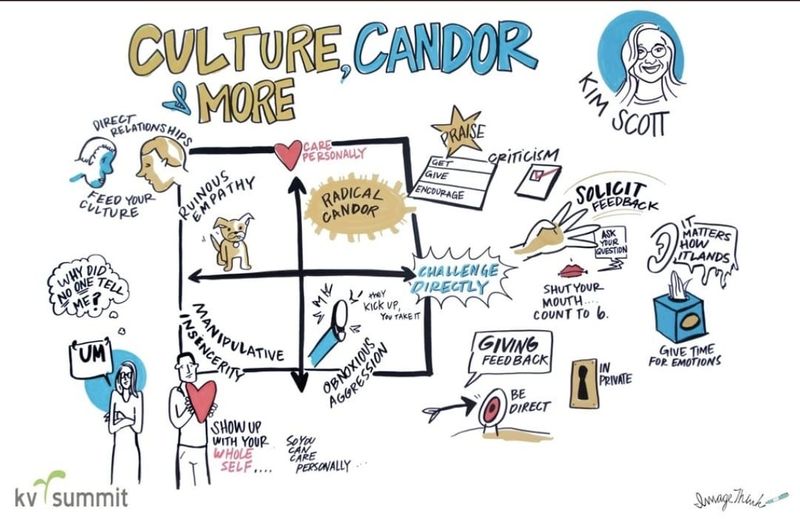 CULTURE, CANDOR
& MORE
KIM SCOTT
DIRECT
RELATIONSHIPS
FEED YOUR
CULTURE
CARE
PERSONALLY
RUINOUS
EMPATHY
RADICAL
CANDOR
PRAISE
GET
GIVE
ENCOURAGE
CRITICISM
SOLICIT
FEEDBACK
ASK
YOUR
QUESTION
IT
MATTERS
HOW
IT LANDS
CHALLENGE
DIRECTLY
SHUT YOUR
MOUTH....
COUNT TO 6.
GIVE TIME
FOR EMOTIONS
WHY DID
NO ONE TELL
ME?
"UM"
MANIPULATIVE
INSINCERITY
THEY
KICK UP,
YOU TAKE IT
OBNOXIOUS
AGGRESSION
GIVING
FEEDBACK
BE
DIRECT
IN
PRIVATE
SHOW UP
WITH YOUR
WHOLE
SELF....
SO YOU
CAN
CARE
PERSONALLY...
kv summit
ImageThink